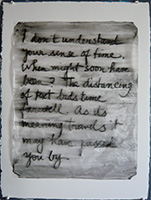 I don't understand
your sense of time.
When might soon have
been? The distancing
of past bids time
farewell. As its
meaning travels it
may have passed
you by.